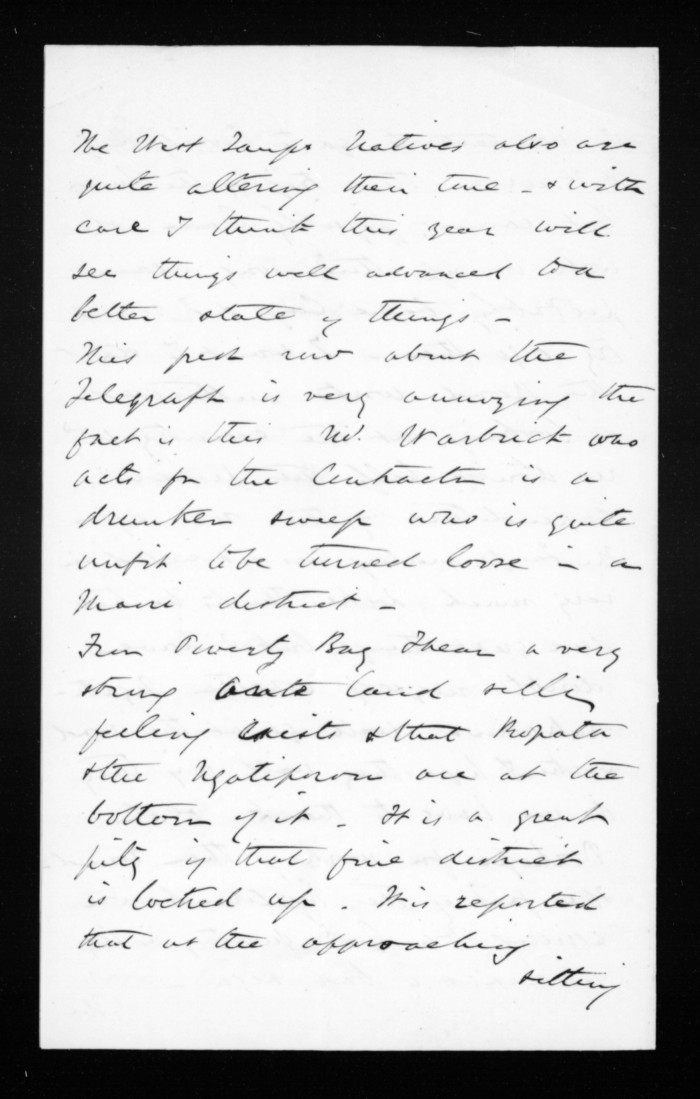 The West Taupo Natives also are
quite altering their tune - & with
care I think this year will
see things well advanced to a
better state of things -
This row about the
Telegraph is very annoying the
fact is this Wd. Warbrick who
acts for the Contractor is a
drunken sweep who is quite
unfit to be turned loose in a
Maori district -
From Poverty Bay I hear a very
strong anti land selling
feeling exists & that Ropata
& the Ngatiporou are at the
bottom of it - It is a great
pity if that fine district
is locked up. It is reported
that at the approaching
sitting